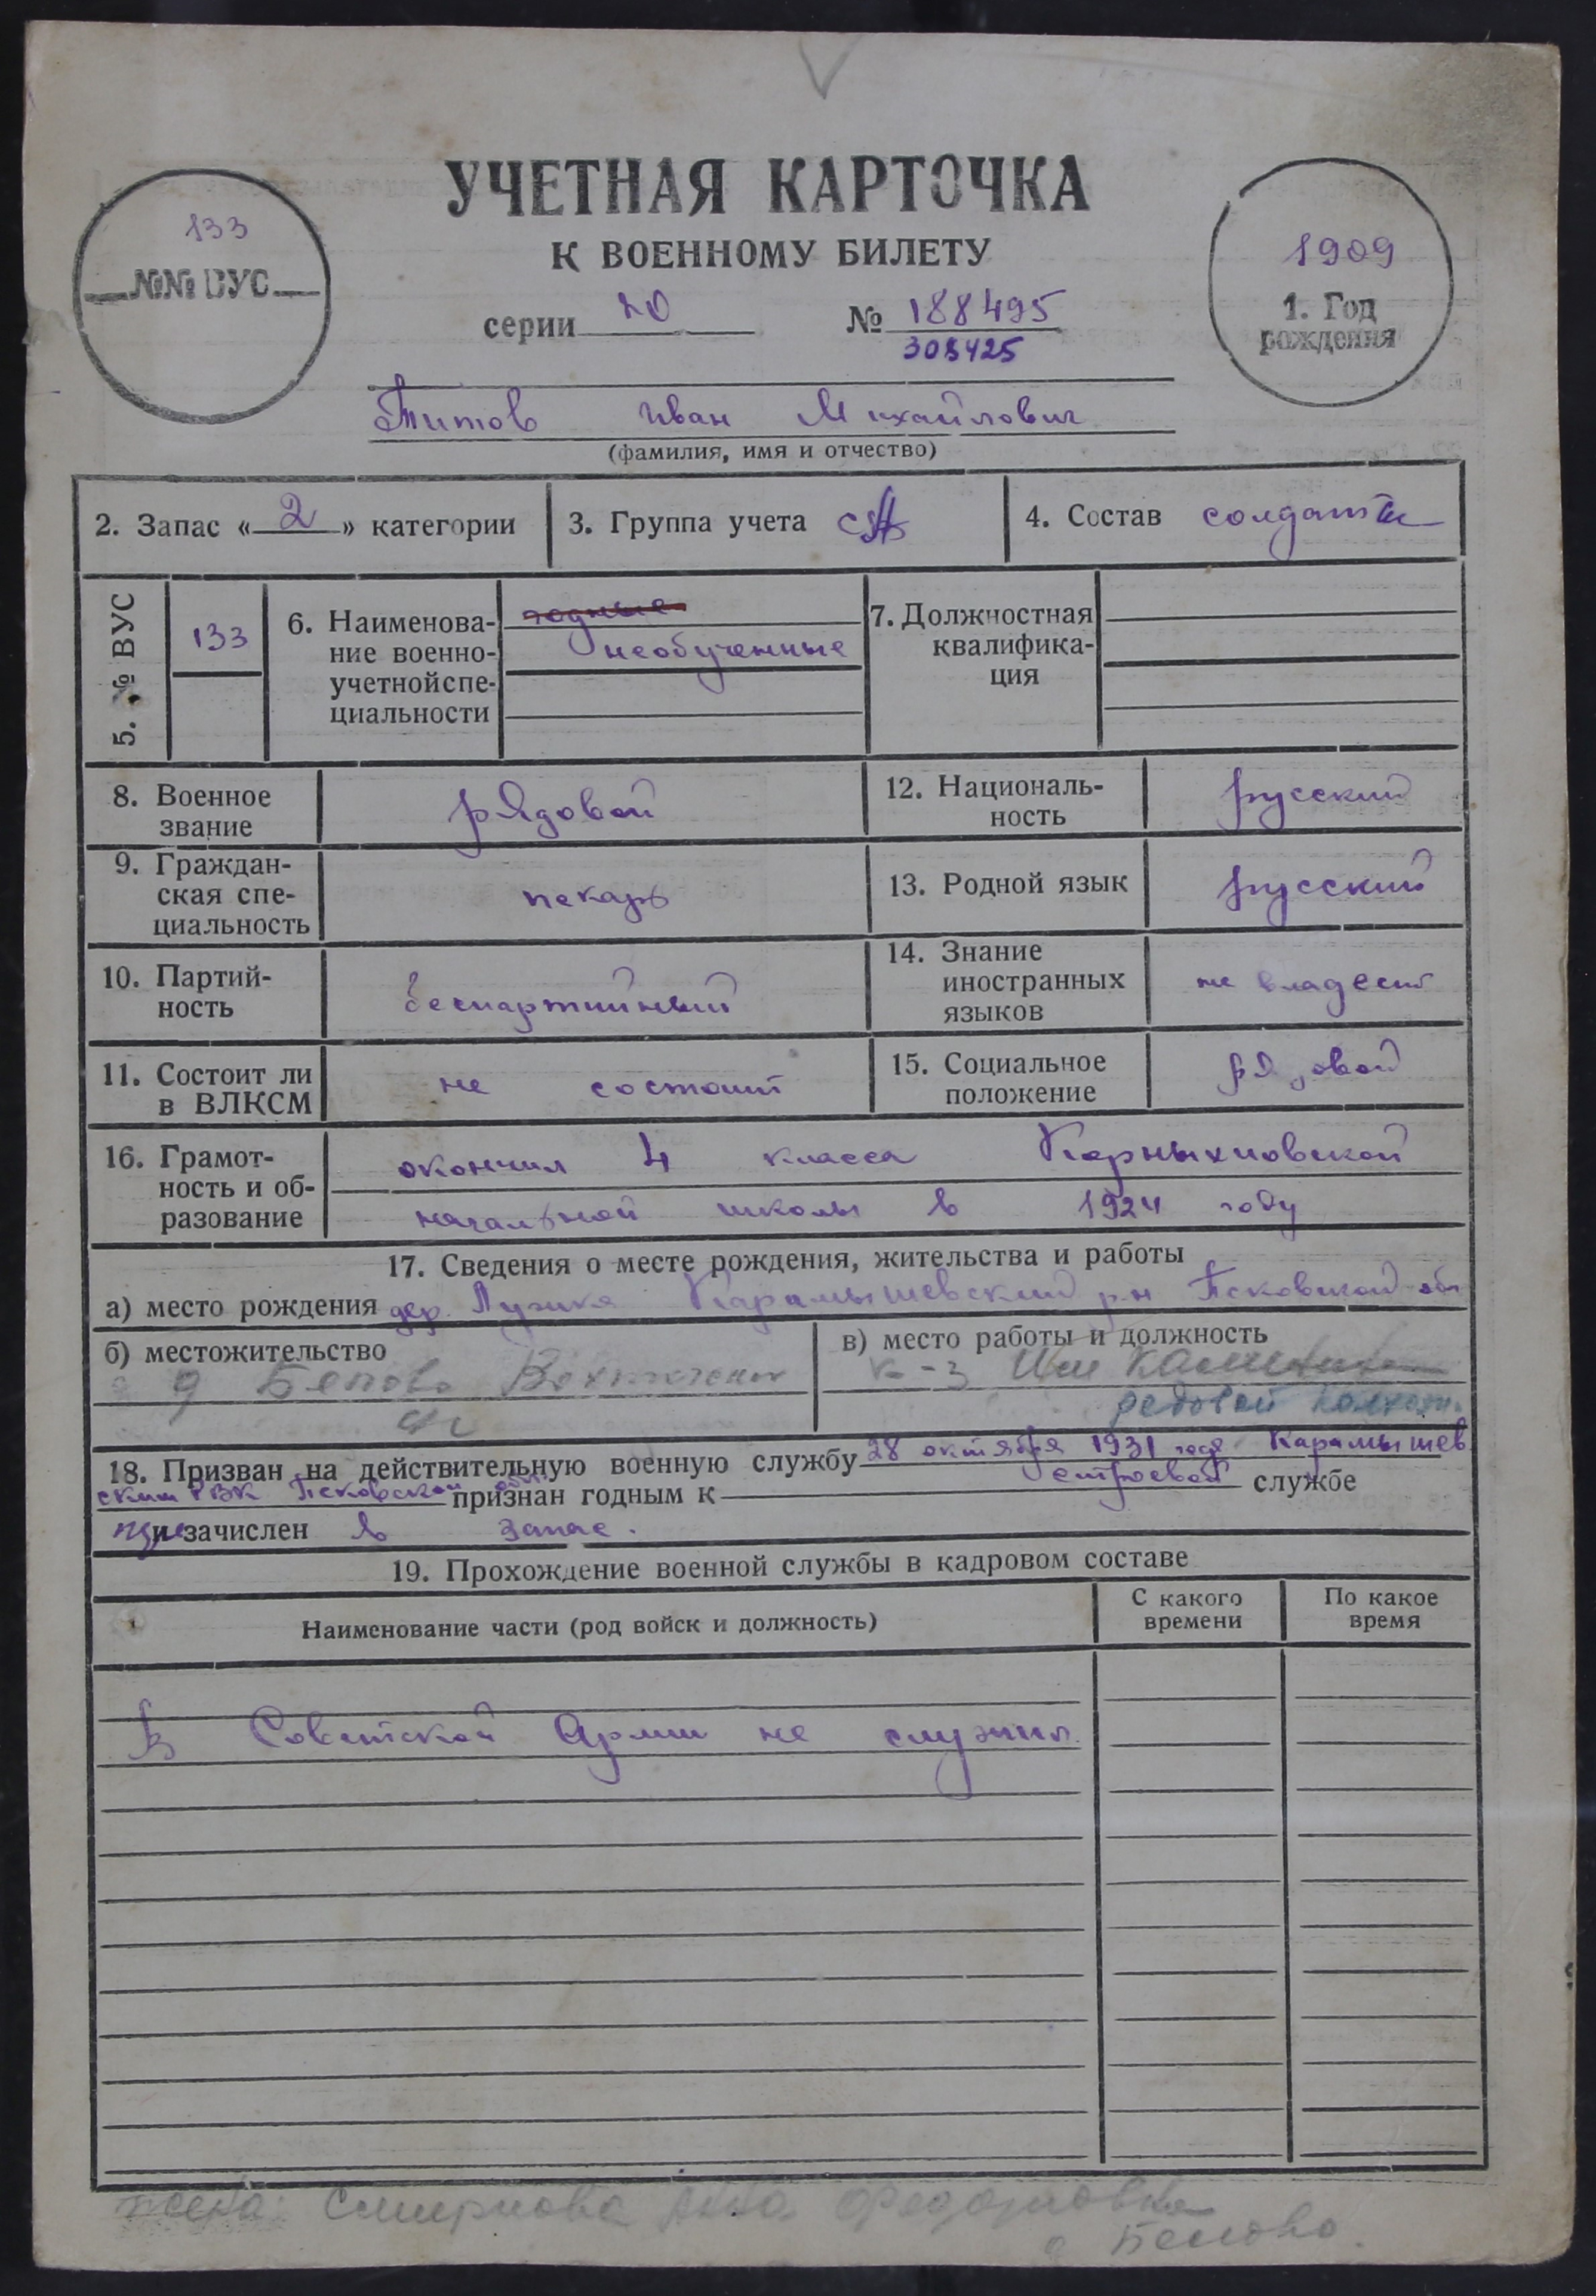 УЧЕТНАЯ КАРТОЧКА
К ВОЕННОМУ БИЛЕТУ
133
№№ ВУС
1909
1. Год
рождения
серии № 188495
Титов Иван Михайлович
(фамилия, имя и отчество)
2. Запас « 2 » категории
3. Группа учета СА
4. Состав солдаты
5. № ВУС
133
6. Наименова-
ние военно-
учетной спе-
циальности
годные
необученные
7. Должностная
квалифика-
ция
8. Военное
звание
рядовой
12. Националь-
ность
русский
9. Граждан-
ская спе-
циальность
пекарь
13. Родной язык
русский
10. Партий-
ность
беспартийный
14. Знание
иностранных
языков
не владеет
11. Состоит ли
в ВЛКСМ
не состоит
15. Социальное
положение
рядовой
16. Грамот-
ность и об-
разование
окончил 4 класса
начальной школы в 1924 году
17. Сведения о месте рождения, жительства и работы
а) место рождения дер. Карамышевский р-н Псковской обл
б) местожительство
д
в) место работы и должность
к-з Им Калинина
редовой колхозн.
18. Призван на действительную военную службу 28 октября 1931 года Карамышев
ским РВК Псковской обл. признан годным к строевой службе
и зачислен в запас.
19. Прохождение военной службы в кадровом составе
Наименование части (род войск и должность)
С какого
времени
По какое
время
В Советской Армии не служил.
жена: Смирнова Анна Федоровна